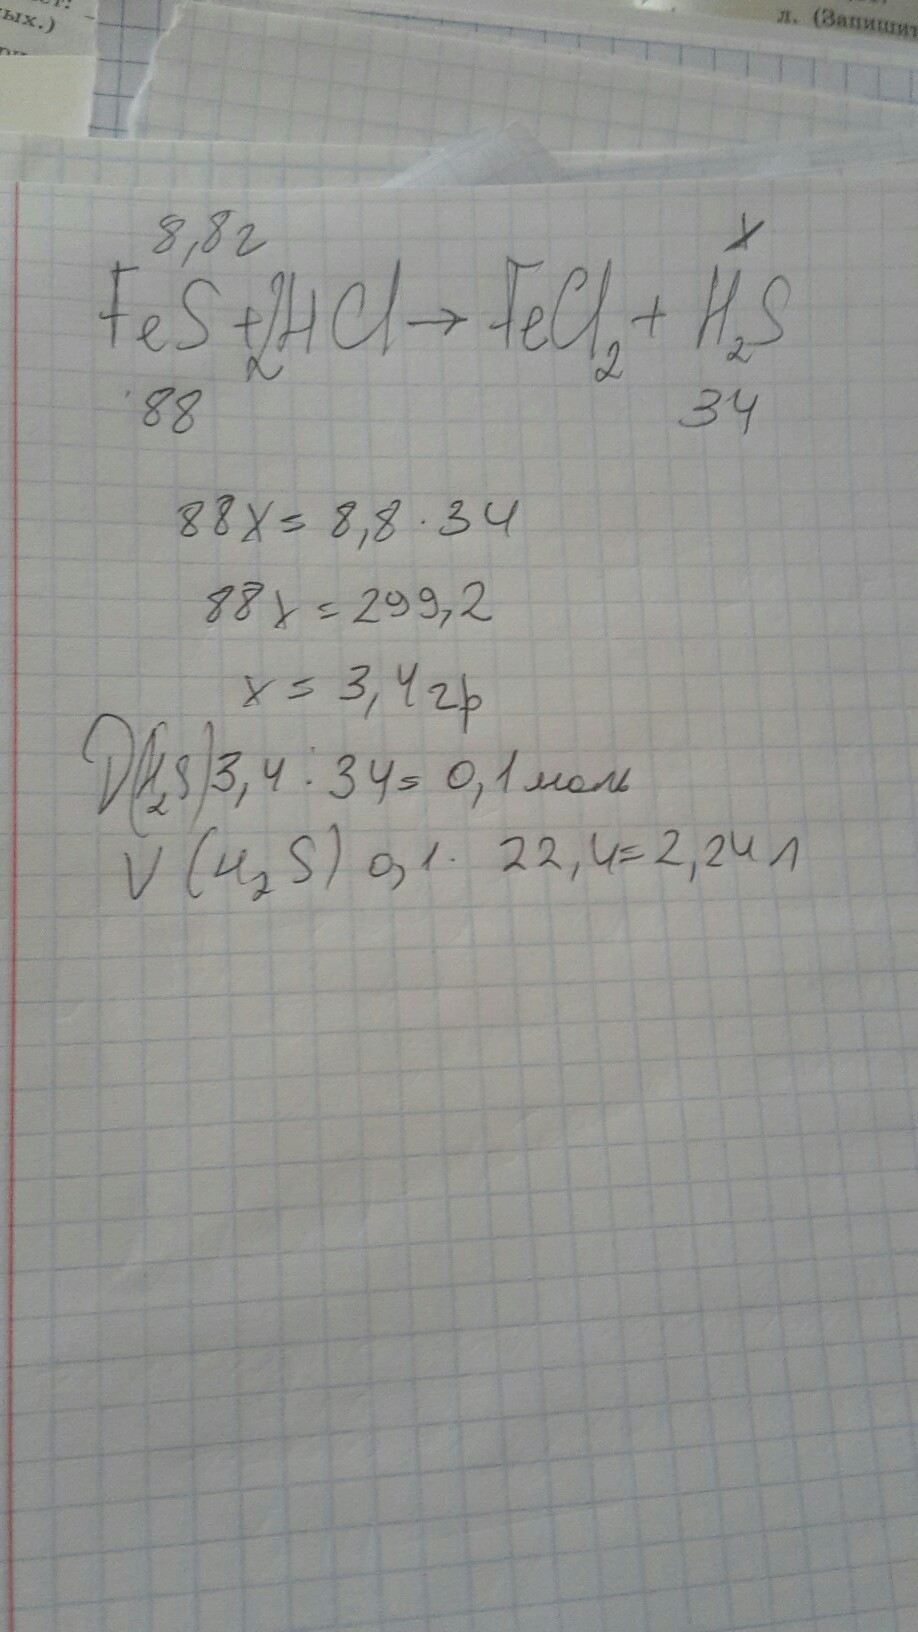 ых.)
л. (Запишит
8,8г x
FeS + 2HCl → FeCl₂ + H₂S
88 34
88x = 8,8 · 34
88x = 299,2
x = 3,4 гр
ν(H₂S) 3,4 : 34 = 0,1 моль
V (H₂S) 0,1 · 22,4 = 2,24 л